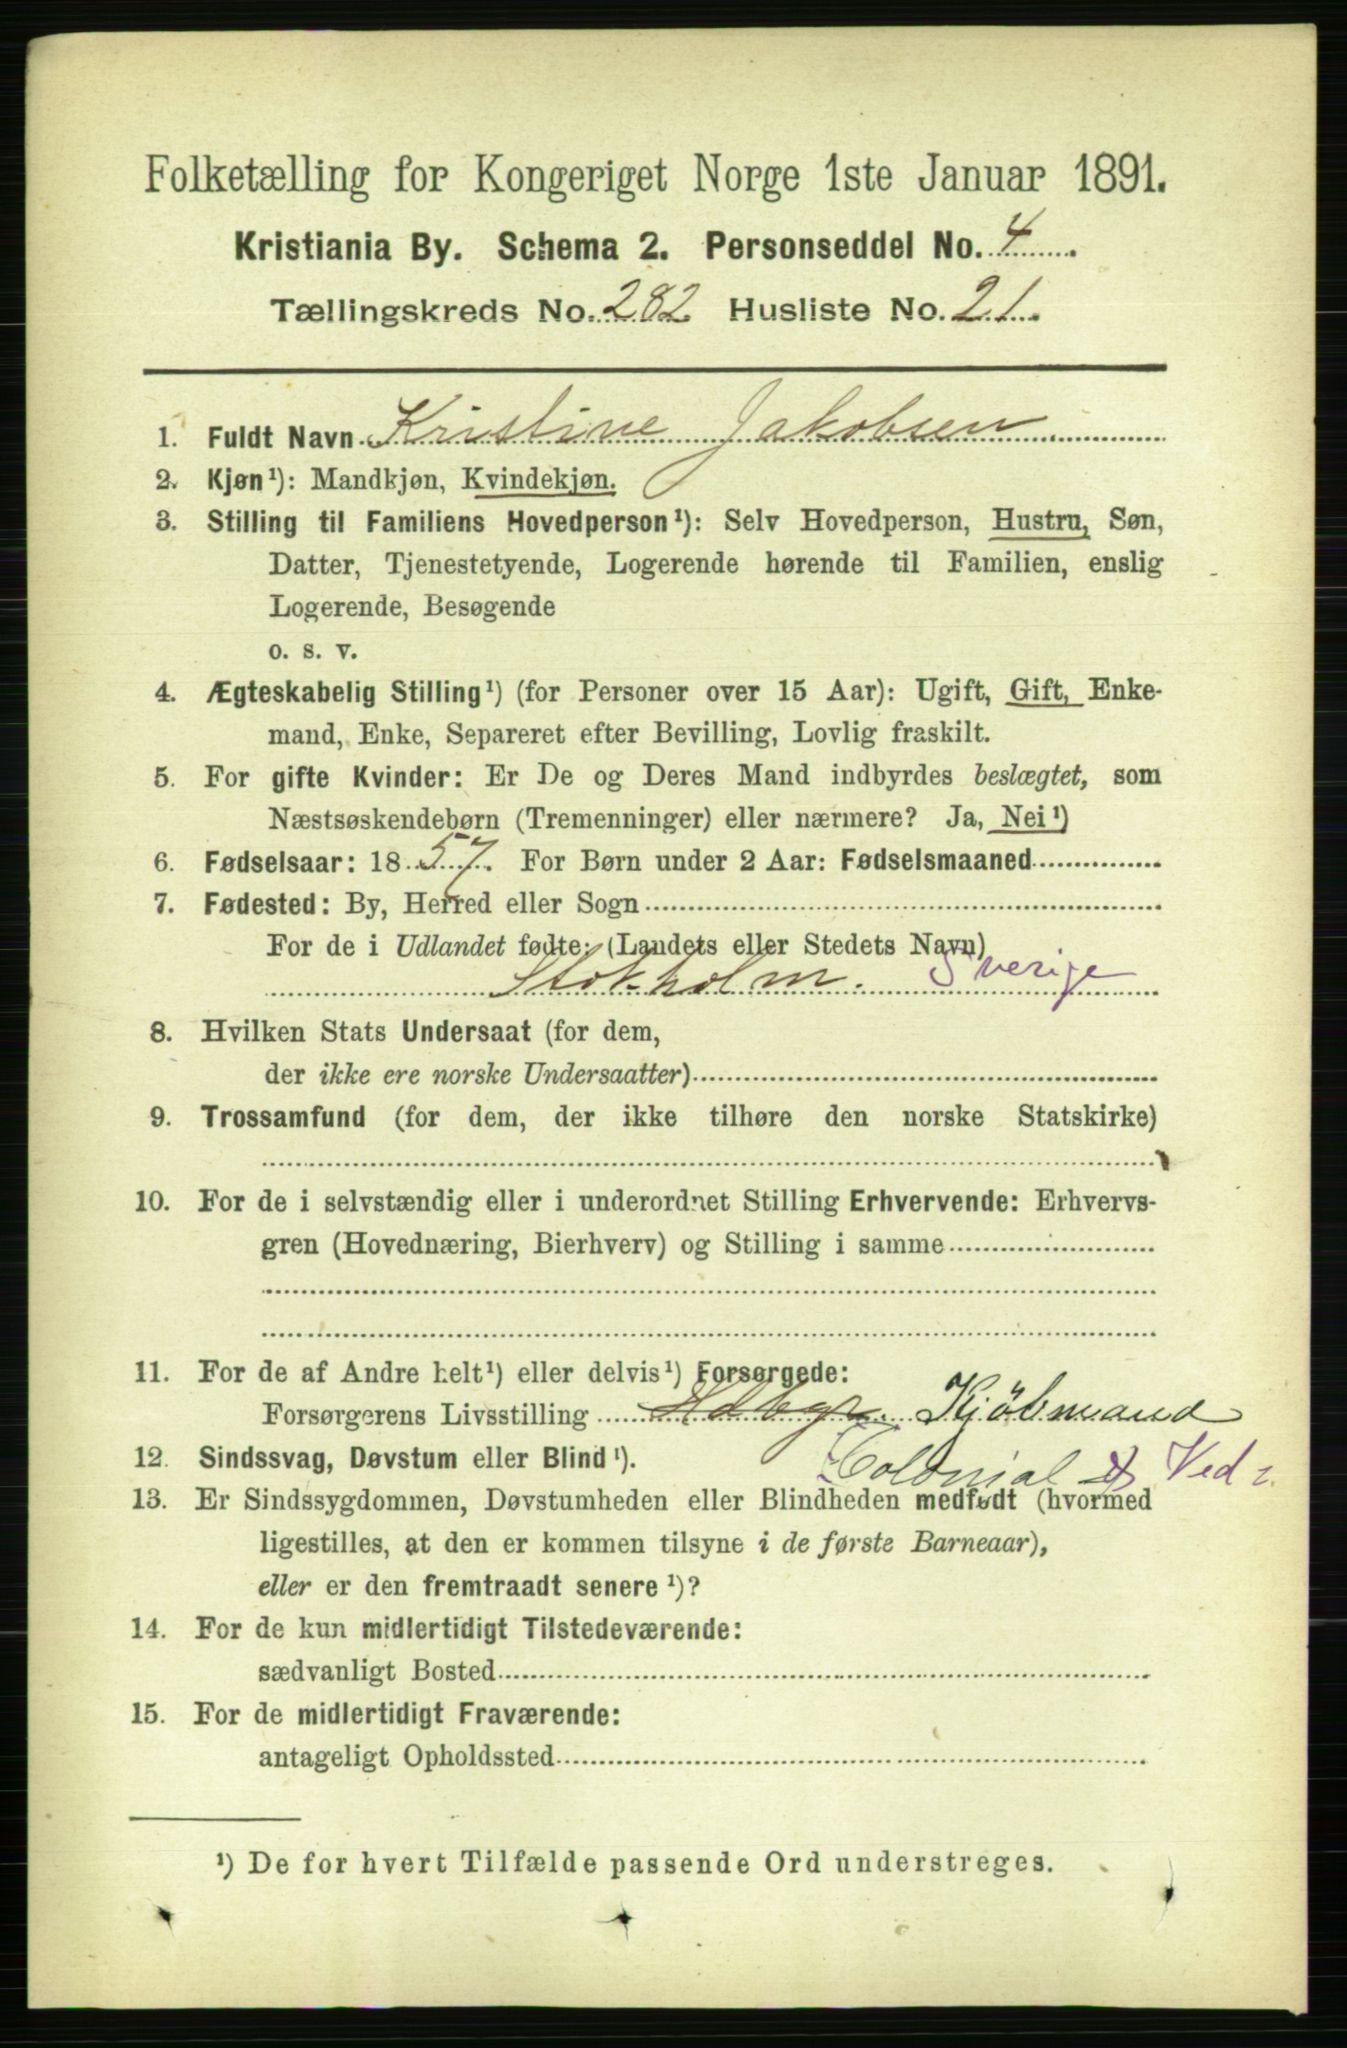 Folketælling for Kongeriget Norge 1ste Januar 1891.
Kristiania By. Schema 2. Personseddel No. 4
Tællingskreds No. 282 Husliste No. 21.
1. Fuldt Navn Kristine Jakobsen
2. Kjøn¹): Mandkjøn, Kvindekjøn.
3. Stilling til Familiens Hovedperson¹): Selv Hovedperson, Hustru, Søn,
Datter, Tjenestetyende, Logerende hørende til Familien, enslig
Logerende, Besøgende
o. s. v.
4. Ægteskabelig Stilling¹) (for Personer over 15 Aar): Ugift, Gift, Enke-
mand, Enke, Separeret efter Bevilling, Lovlig fraskilt.
5. For gifte Kvinder: Er De og Deres Mand indbyrdes beslægtet, som
Næstsøskendebørn (Tremenninger) eller nærmere? Ja, Nei¹)
6. Fødselsaar: 1857. For Børn under 2 Aar: Fødselsmaaned
7. Fødested: By, Herred eller Sogn
For de i Udlandet fødte: (Landets eller Stedets Navn)
Stokholm. Sverige
8. Hvilken Stats Undersaat (for dem,
der ikke ere norske Undersaatter)
9. Trossamfund (for dem, der ikke tilhøre den norske Statskirke)
10. For de i selvstændig eller i underordnet Stilling Erhvervende: Erhvervs-
gren (Hovednæring, Bierhverv) og Stilling i samme
11. For de af Andre helt¹) eller delvis¹) Forsørgede:
Forsørgerens Livsstilling Hdbgr. Kjöbmand
Colonial & Ved
12. Sindssvag, Døvstum eller Blind¹).
13. Er Sindssygdommen, Døvstumheden eller Blindheden medfødt (hvormed
ligestilles, at den er kommen tilsyne i de første Barneaar),
eller er den fremtraadt senere¹)?
14. For de kun midlertidigt Tilstedeværende:
sædvanligt Bosted
15. For de midlertidigt Fraværende:
antageligt Opholdssted
¹) De for hvert Tilfælde passende Ord understreges.